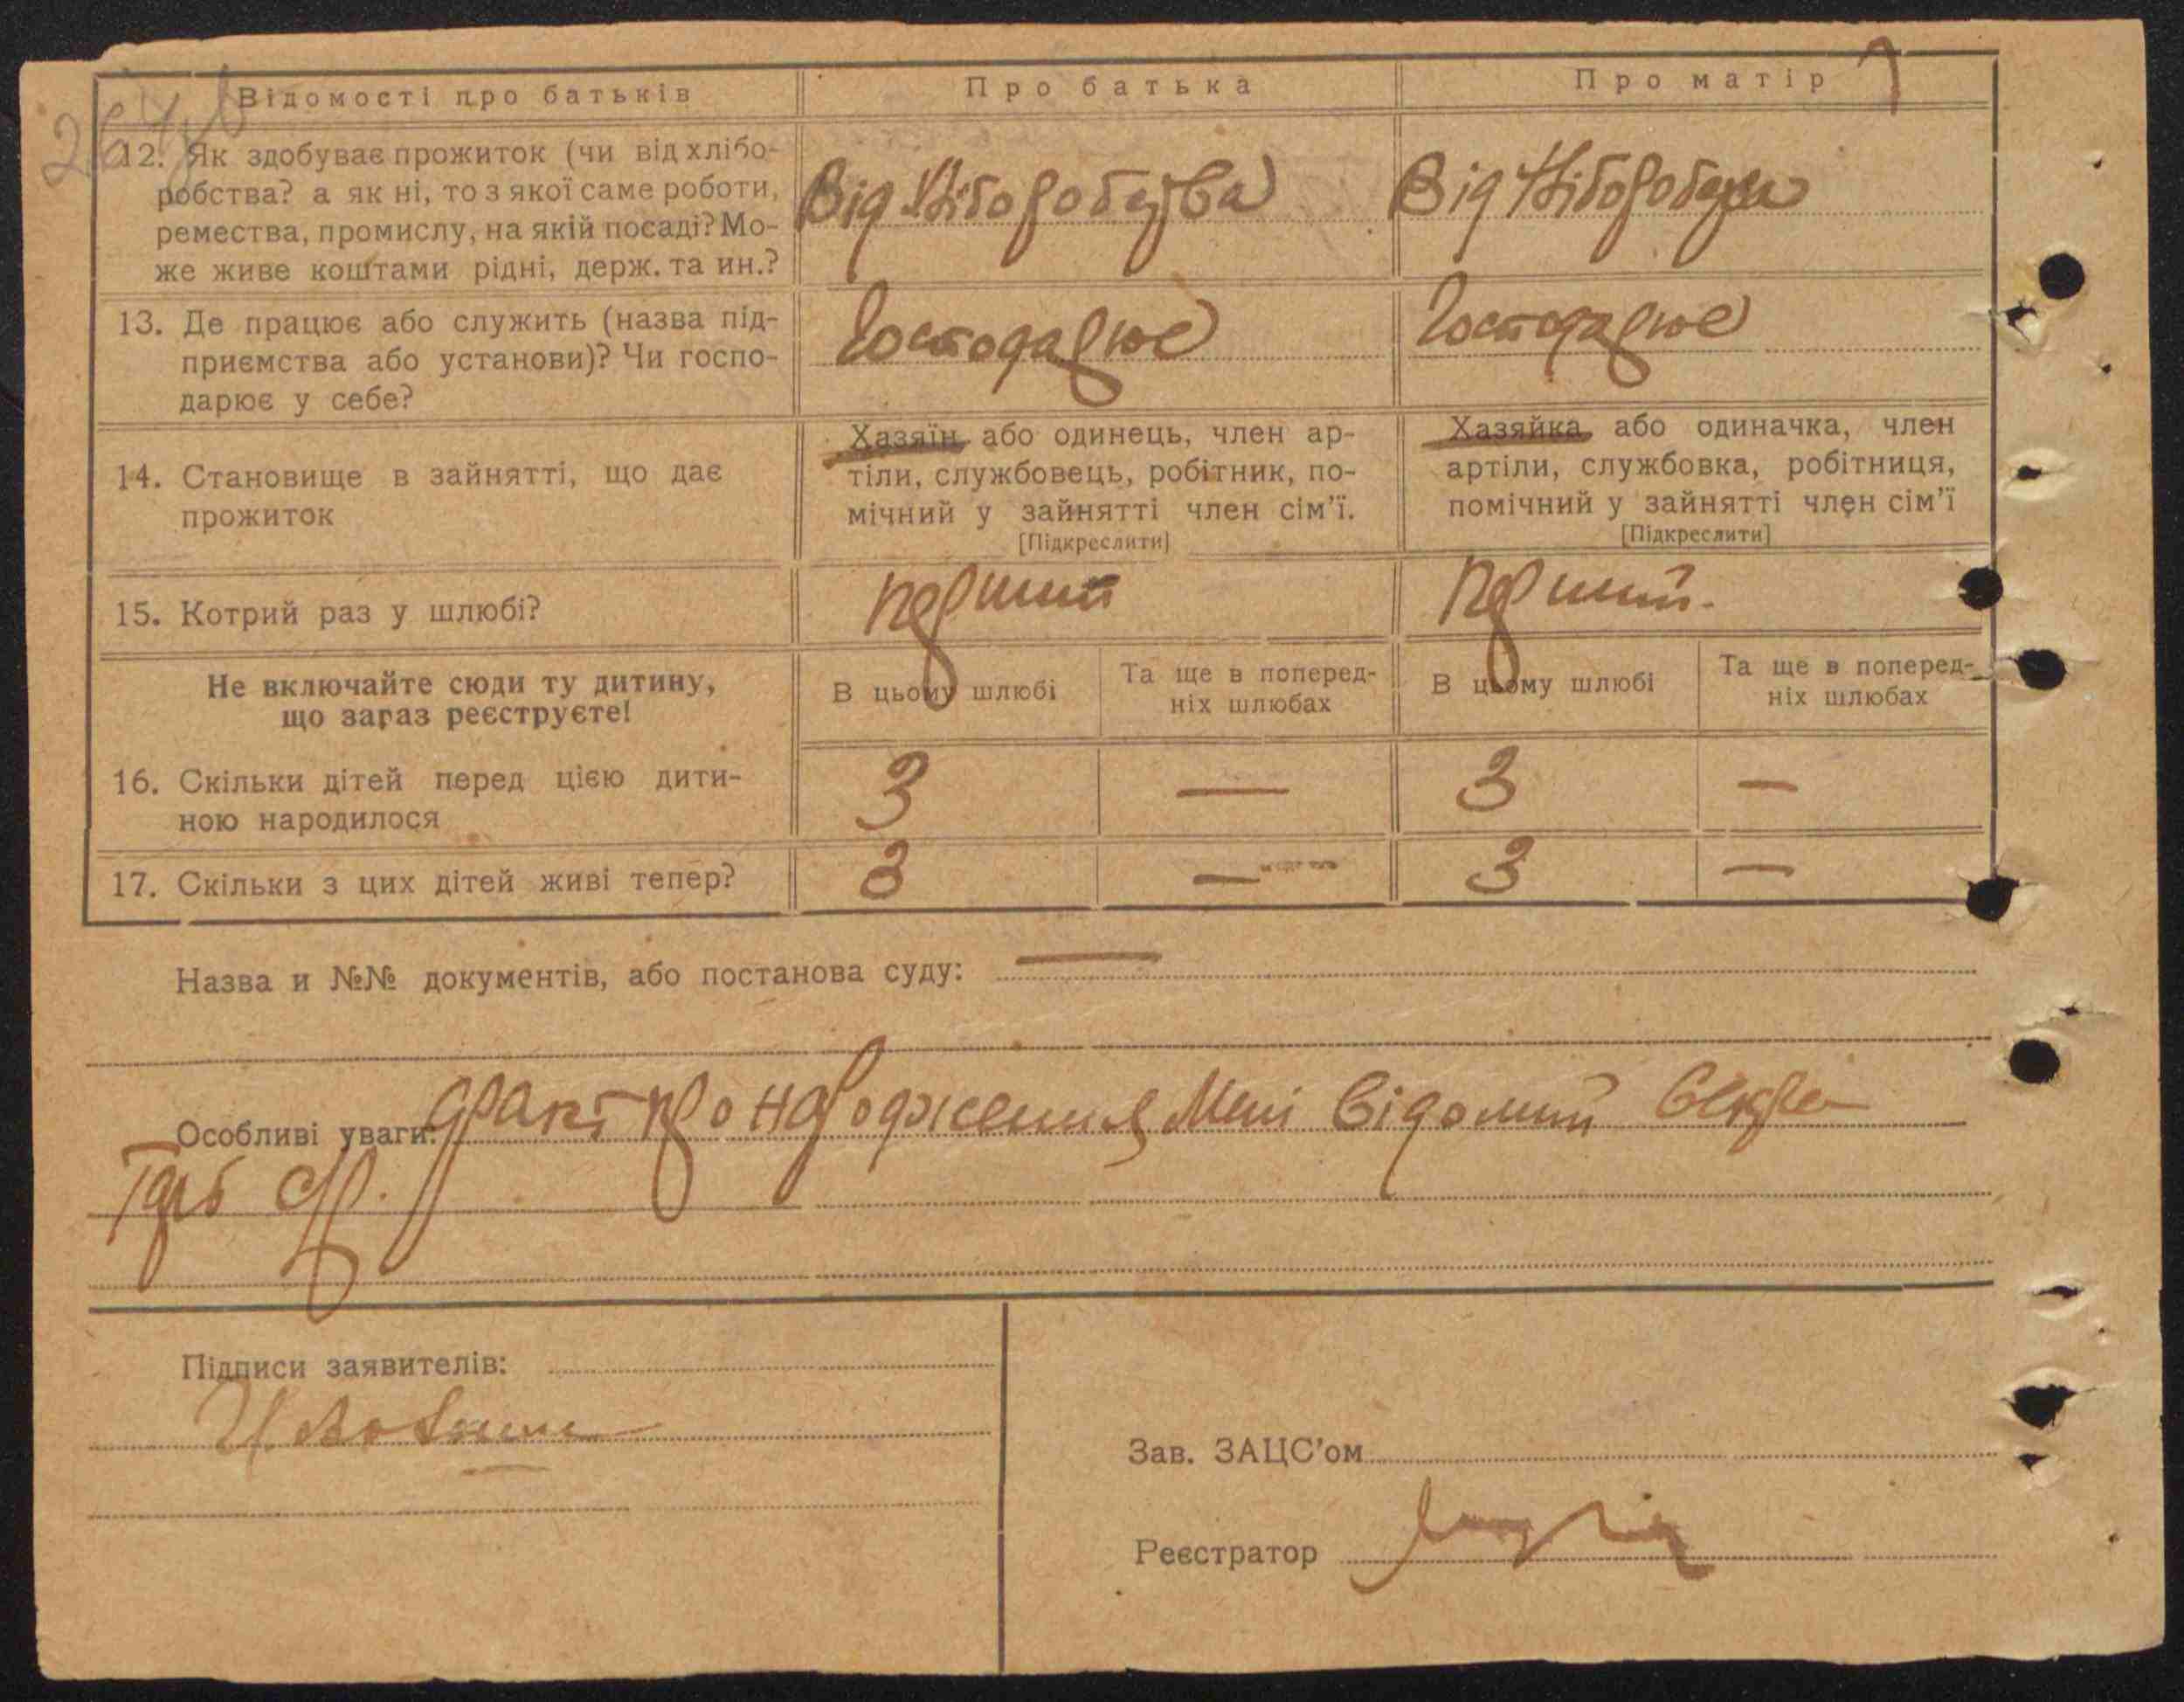 Відомості про батьків
Про батька
Про матір
12. Як здобуває прожиток (чи від хлібо-
робства? а як ні, то з якої саме роботи,
ремества, промислу, на якій посаді? Мо-
же живе коштами рідні, держ. та ин.?
Від хліборобства
Від хліборобства
13. Де працює або служить (назва під-
приємства або установи)? Чи госпо-
дарює у себе?
Господарює
Господарює
14. Становище в зайнятті, що дає
прожиток
Хазяїн або одинець, член ар-
тіли, службовець, робітник, по-
мічний у зайнятті член сім'ї.
[Підкреслити]
Хазяйка або одиначка, член
артіли, службовка, робітниця,
помічний у зайнятті член сім'ї
[Підкреслити]
15. Котрий раз у шлюбі?
перший
перший.
Не включайте сюди ту дитину,
що зараз реєструєте!
В цьому шлюбі
Та ще в поперед-
ніх шлюбах
В цьому шлюбі
Та ще в поперед-
ніх шлюбах
16. Скільки дітей перед цією дити-
ною народилося
3 — 3 —
17. Скільки з цих дітей живі тепер?
3 — 3 —
Назва и №№ документів, або постанова суду: —
Особливі уваги: Факт про народження Мені відомий
Підписи заявителів:
Зав. ЗАЦС'ом
Реєстратор